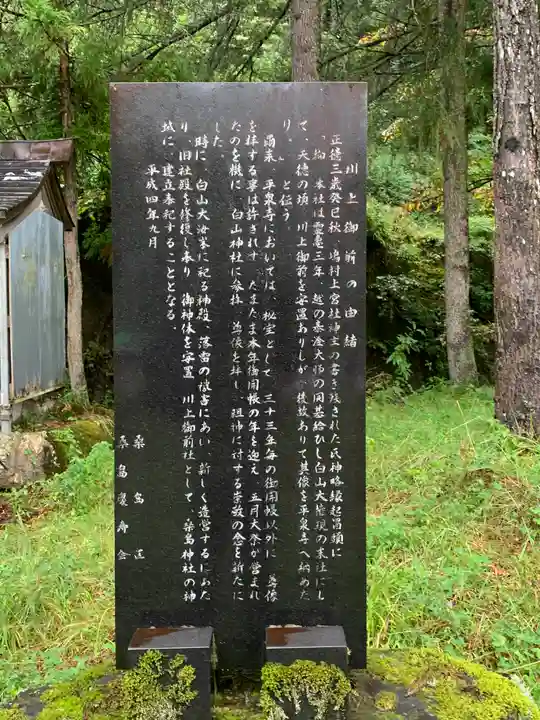 川上御前の由緒
正徳三歳癸巳秋、嶋村上宮社神主の書き残された氏神略縁起冒頭に
、抑　本社は霊亀三年、越の泰澄大師の開基給ひし白山大権現の末社にし
て、天徳の頃、川上御前を安置ありしが　後故ありて其像を平泉寺へ納めた
り、　と伝う。
爾来、平泉寺においては、秘宝として、三十三年毎の御開帳以外に　尊像
を拝する事は許されず　たまたま本年御開帳の年を迎え　五月大祭が営まれ
たのを機に　白山神社に参拝　尊像を拝し、祖神に対する崇敬の念を新たに
した。
時に、白山大汝峯に祀る神殿、落雷の被害にあい、新しく造営するにあた
り、旧社殿を修復し奉り　御神体を安置　川上御前社として、桑島神社の神
域に　建立奉祀することとなる。
平成四年九月
桑島区
桑島慶寿会